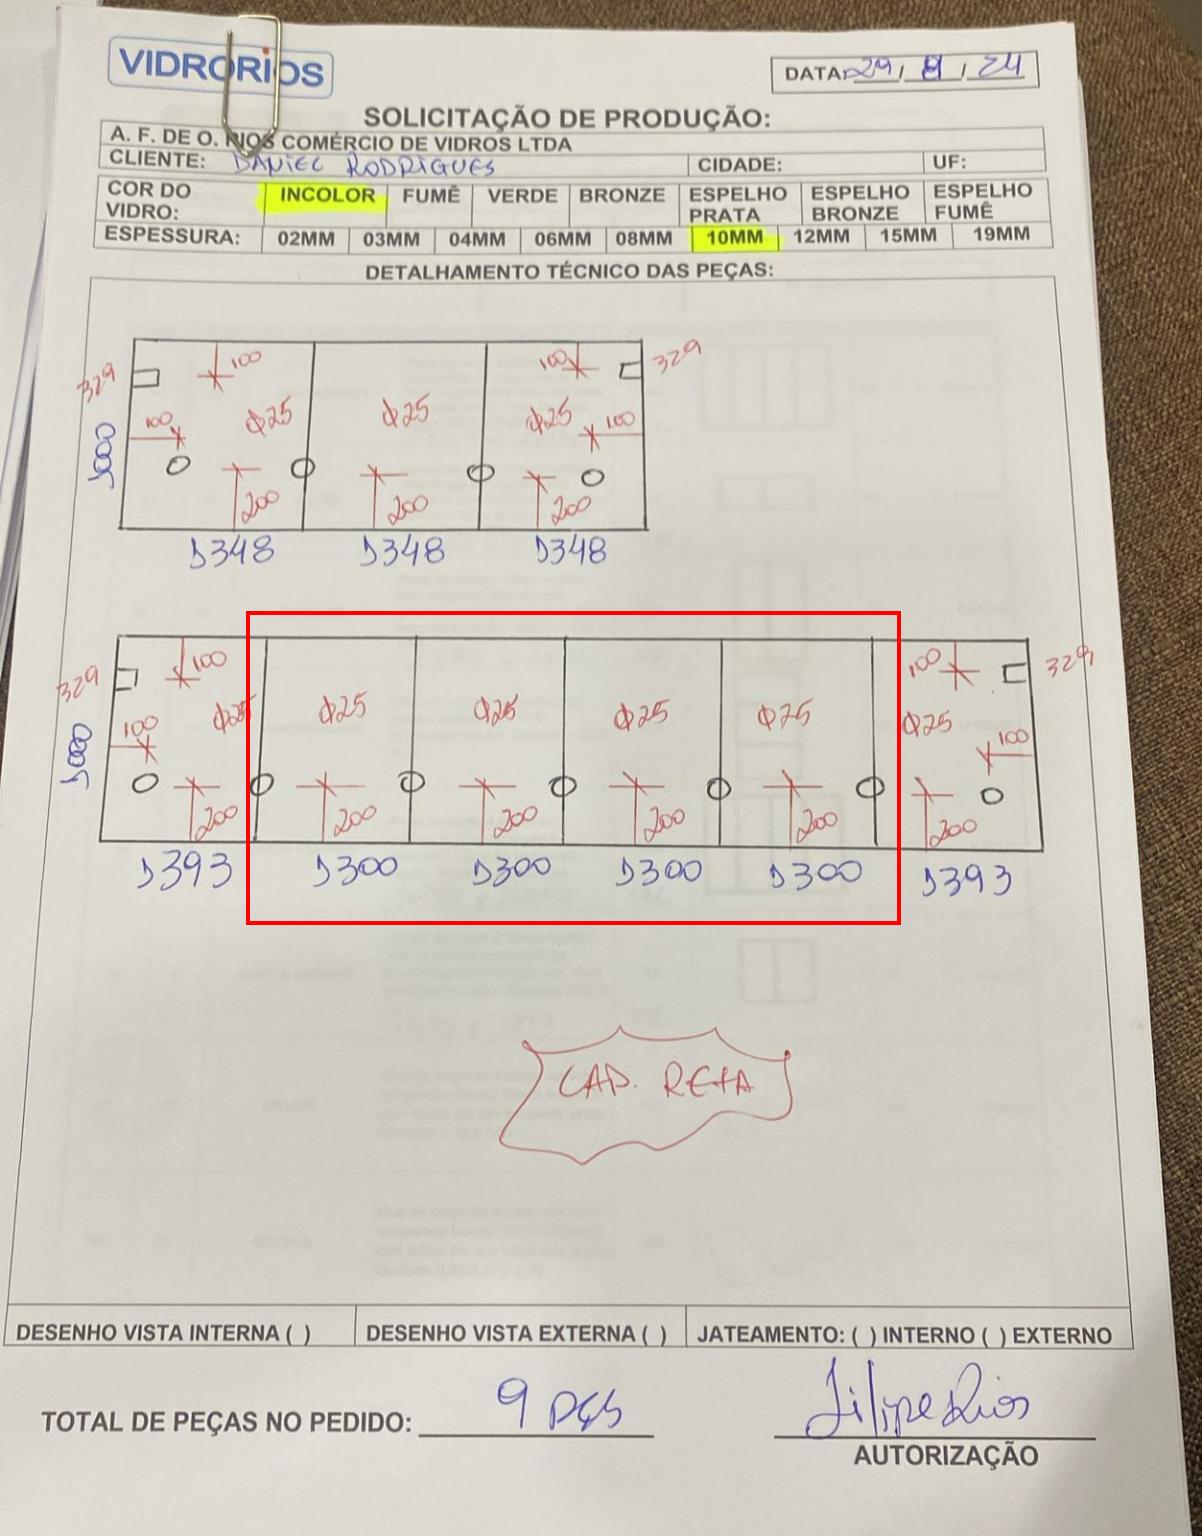 VIDRORIOS
DATA: 29 / 8 / 24
SOLICITAÇÃO DE PRODUÇÃO:
A. F. DE O. RIOS COMÉRCIO DE VIDROS LTDA
CLIENTE: DANIEL RODRIGUES CIDADE: UF:
COR DO VIDRO: INCOLOR FUMÊ VERDE BRONZE ESPELHO PRATA ESPELHO BRONZE ESPELHO FUMÊ
ESPESSURA: 02MM 03MM 04MM 06MM 08MM 10MM 12MM 15MM 19MM
DETALHAMENTO TÉCNICO DAS PEÇAS:
329 100 100 329
100 Φ25 Φ25 Φ25 100
200 200 200
348 348 348
329 100 100 329
100 Φ25 Φ25 Φ25 Φ25 Φ25 Φ25 100
200 200 200 200 200 200
393 300 300 300 300 393
LAP. RETA
DESENHO VISTA INTERNA ( ) DESENHO VISTA EXTERNA ( ) JATEAMENTO: ( ) INTERNO ( ) EXTERNO
TOTAL DE PEÇAS NO PEDIDO: 9 PÇS Filipe Rios
AUTORIZAÇÃO